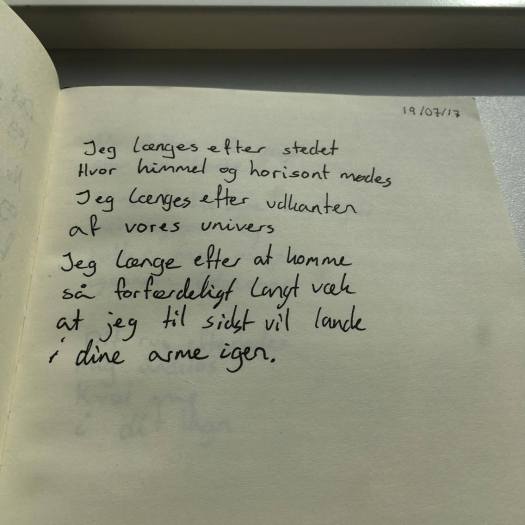 19/07/17
Jeg længes efter stedet
Hvor himmel og horisont mødes
Jeg længes efter udkanten
af vores univers
Jeg længe efter at komme
så forfærdeligt langt væk
at jeg til sidst vil lande
i dine arme igen.